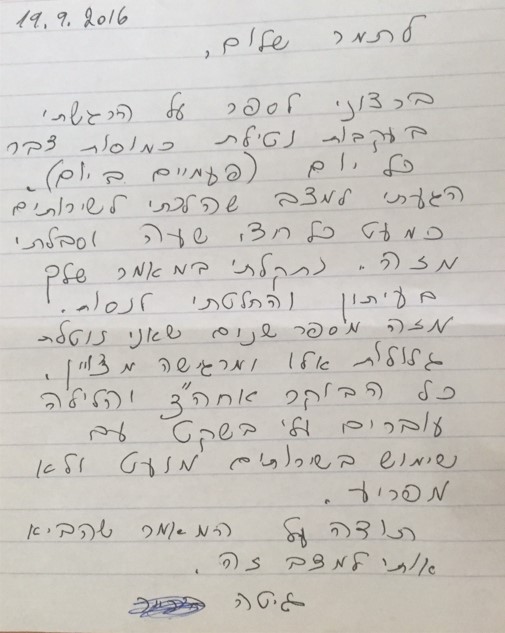 19.9.2016
לתמר שלום,
ברצוני לספר על הרגשתי
בעקבות נטילת כמוסות צבר
כל יום (פעמיים ביום).
הגעתי למצב שהלכתי לשירותים
כמעט כל חצי שעה וסבלתי
מזה. נתקלתי במאמר שלך
בעיתון והחלטתי לנסות.
מזה מספר שנים שאני נוטלת
גלולות אלו ומרגישה מצויין.
כל הבוקר אחה"צ והלילה
עוברים עלי בשקט עם
שימוש בשירותים מועט ולא
מפריע.
תודה על המאמר שהביא
אותי למצב זה.
גיטה